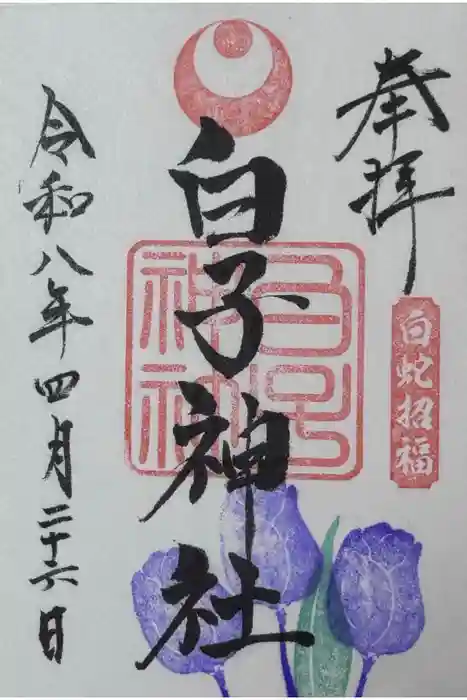 奉拝
白蛇招福
白子神社
令和八年四月二十六日